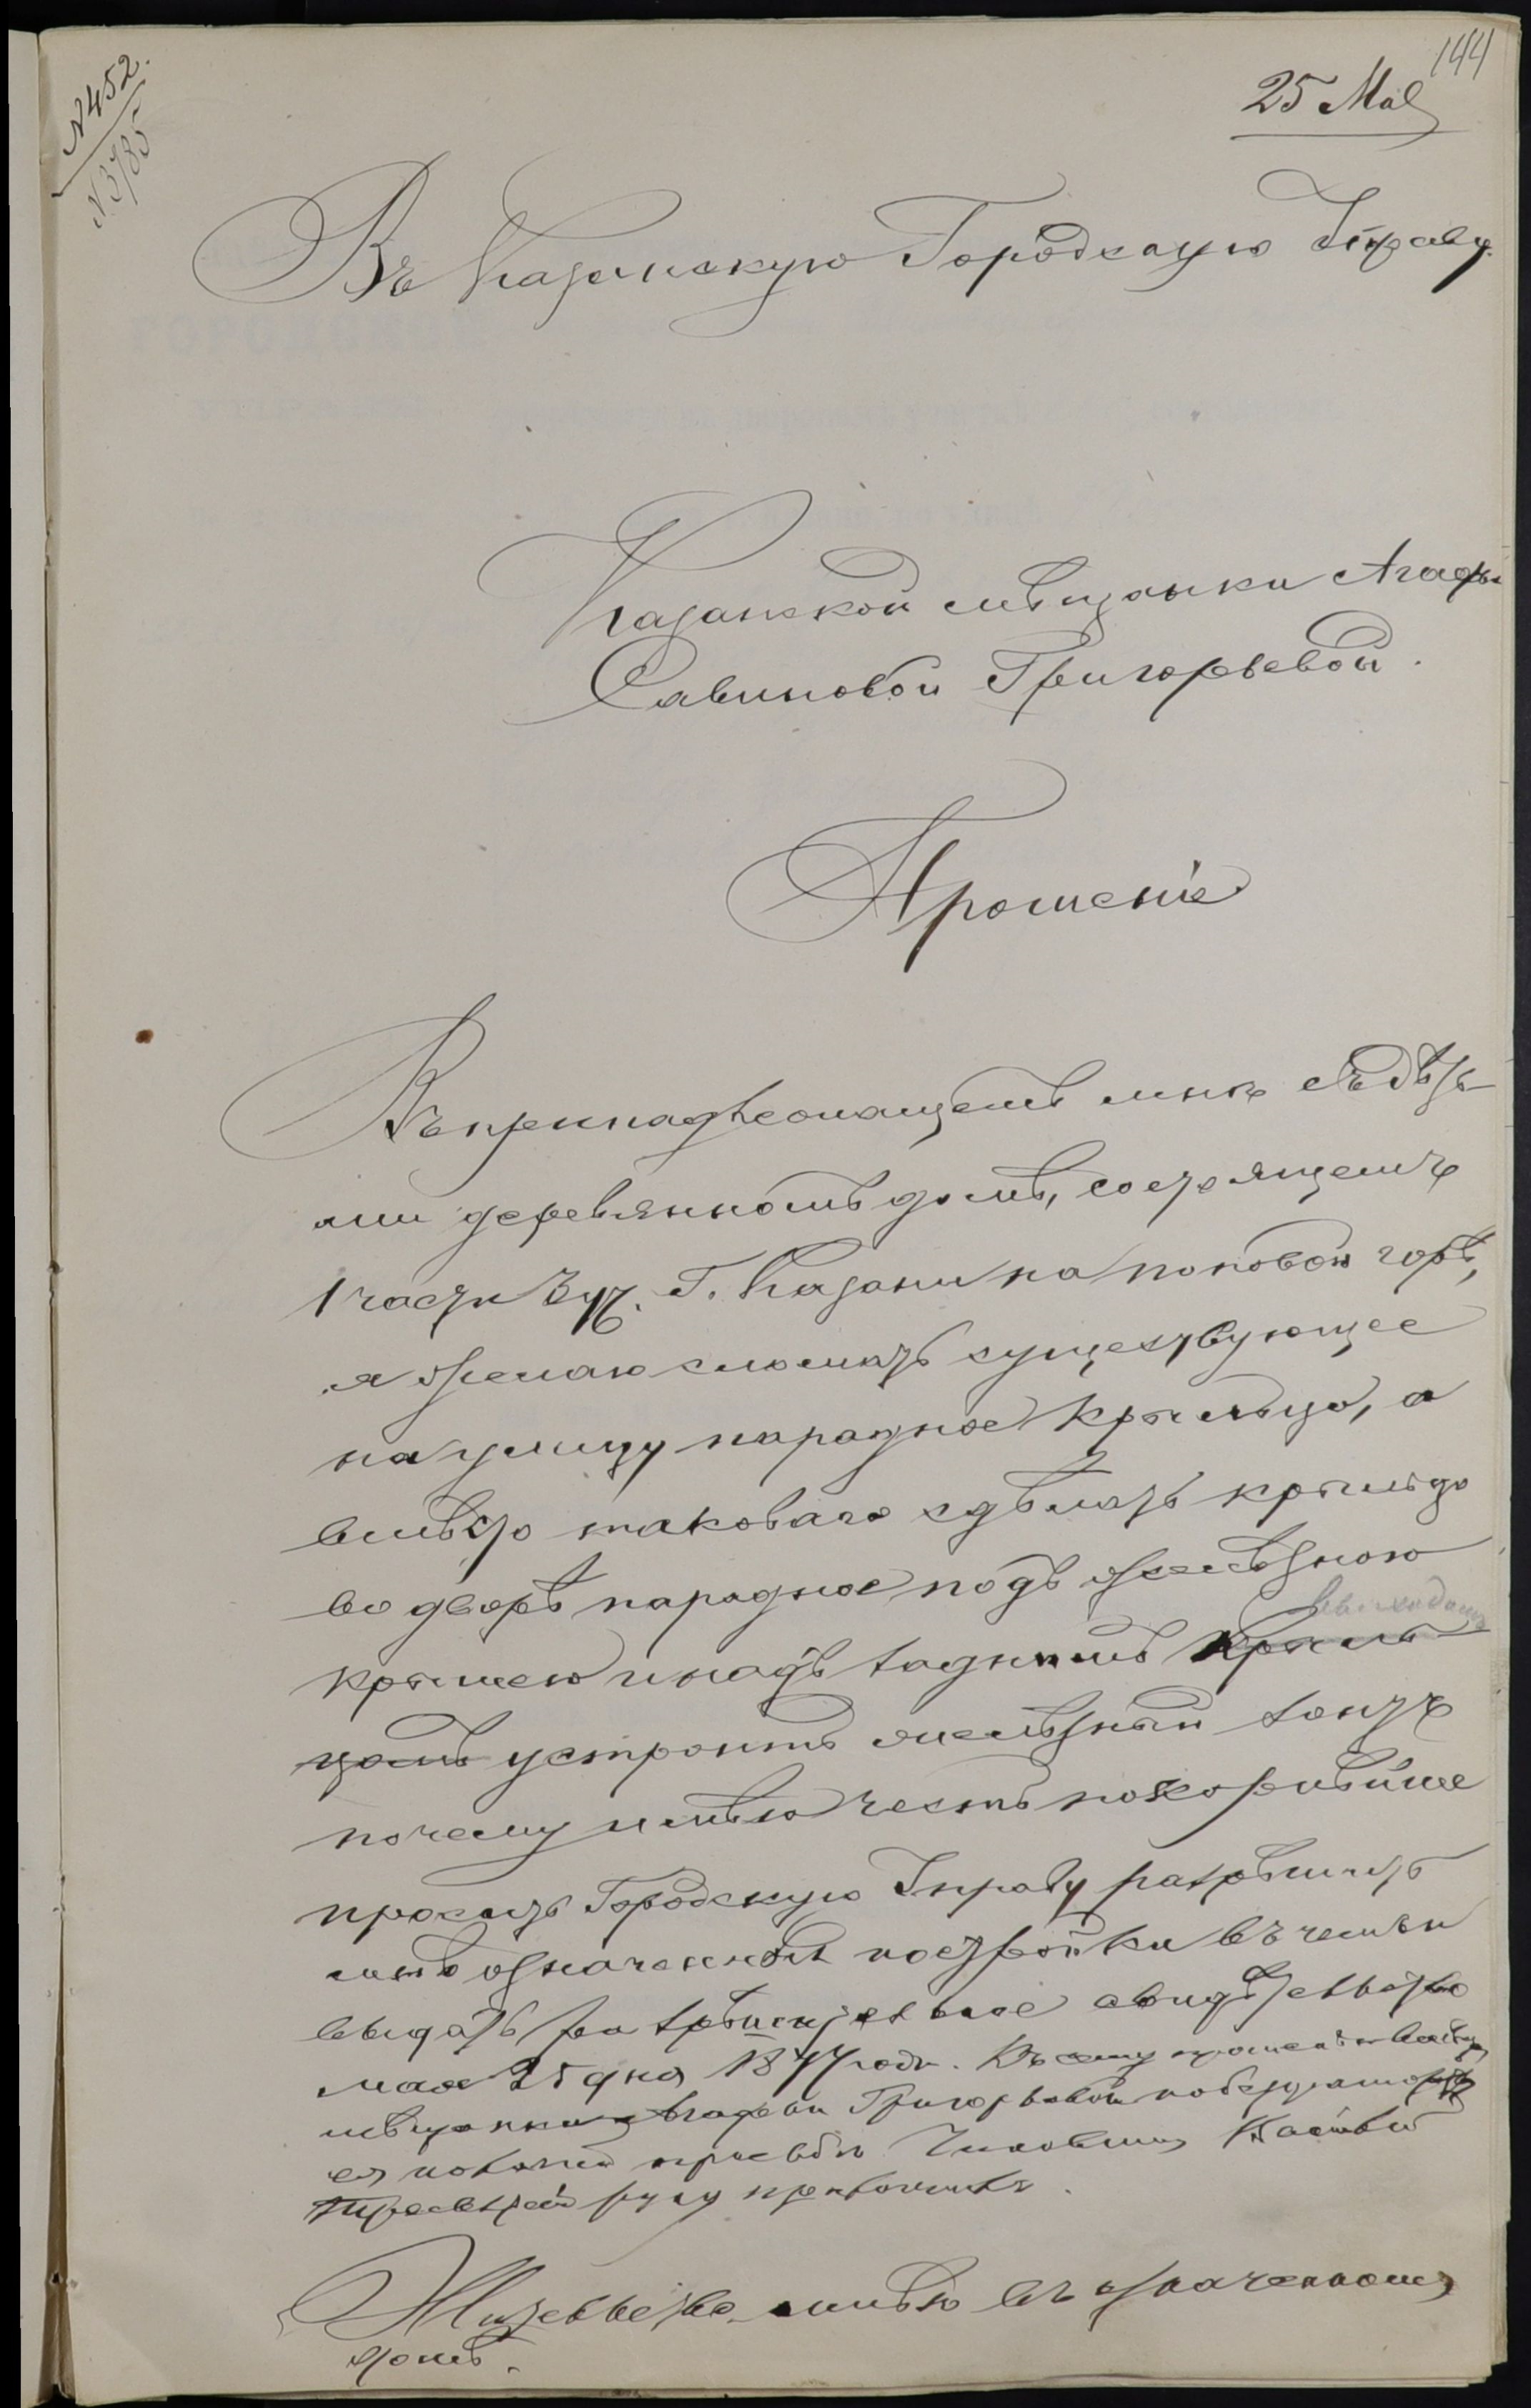 144
25 Мая
N 452.
N 3785
Въ Казанскую Городскую Управу.
Казанской мѣщанки Агафьи
Савиновой Григорьевой.
Прошеніе
Въ принадлежащемъ мнѣ съ дѣть-
ми деревянномъ домѣ, состоящемъ
1 части 3 уч. Г. Казани на поповой горѣ,
я желаю сломать существующее
на улицу парадное крыльцо, а
вмѣсто таковаго сдѣлать крыльцо
во дворѣ парадное подъ желѣзною
выходомъ
крышею и надъ заднимъ крыль-
цомъ устроить желѣзный зонтъ
почему имѣю честь покорнѣйше
просить Городскую Управу разрѣшить
мнѣ означенныя постройки въ чемъ и
выдать разрѣшительное свидѣтельство
мая 25 дня 1877 года. Къ сему прошенію
мѣщанки Агафьи Григорьевой
ея личной прозьбѣ
руку приложилъ.
Жительство имѣю въ означенномъ
домѣ.